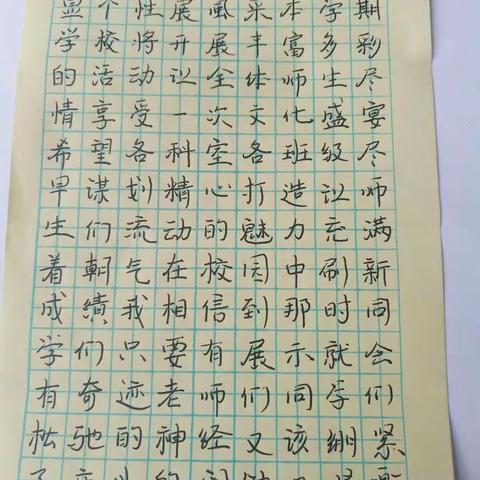 显个性展風采本学期
学校将开展丰富多彩
的活动让全体师生尽
情享受一次文化盛宴
希望各科室各班级尽
早谋划精心打造让师
生们流动的魅力充满
着朝气在校园中刷新
成績我相信到那时同
学们只要有展示就会
有奇迹老师们同学们
松驰的神经又该绷紧